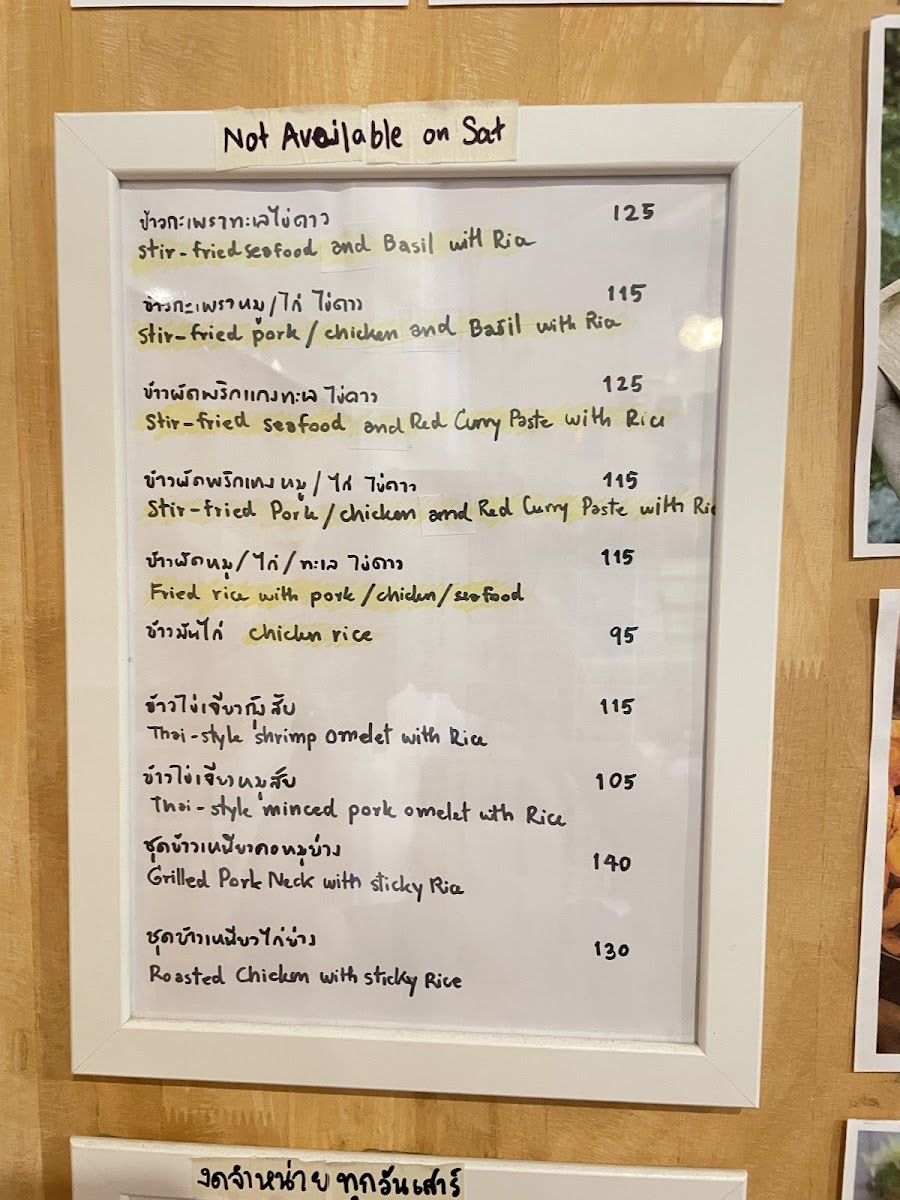 Not Available on Sat
ข้าวกะเพราทะเลไข่ดาว 125
Stir-fried seafood and Basil with Rice
ข้าวกะเพราหมู/ไก่ ไข่ดาว 115
Stir-fried pork/chicken and Basil with Rice
ข้าวผัดพริกแกงทะเล ไข่ดาว 125
Stir-fried seafood and Red Curry Paste with Rice
ข้าวผัดพริกแกง หมู/ไก่ ไข่ดาว 115
Stir-fried Pork/chicken and Red Curry Paste with Ric
ข้าวผัดหมู/ไก่/ทะเล ไข่ดาว 115
Fried rice with pork/chicken/seafood
ข้าวมันไก่ chicken rice 95
ข้าวไข่เจียวกุ้งสับ 115
Thai-style shrimp omelet with Rice
ข้าวไข่เจียวหมูสับ 105
Thai-style minced pork omelet with Rice
ชุดข้าวเหนียวคอหมูย่าง 140
Grilled Pork Neck with sticky Rice
ชุดข้าวเหนียวไก่ย่าง 130
Roasted Chicken with sticky Rice
งดจำหน่าย ทุกวันเสาร์